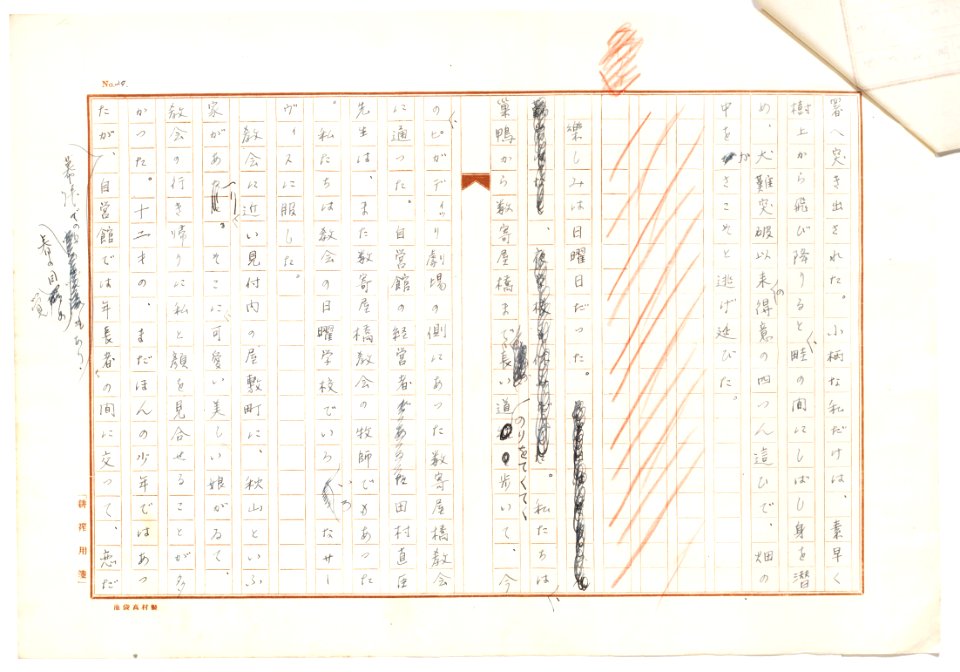 No. 15.
署へ突き出された。小柄な私だけは、素早く
樹上から飛び降りると畦の間にしばし身を潜
め、犬難突破以来得意の四つん這ひで、畑の
中をがさこそと逃げ延びた。
楽しみは日曜日だった。
私たちは
巣鴨から数寄屋橋まで長い道のりをてくてく歩いて、今
のピカデイリ劇場の側にあった数寄屋橋教会
に通った。自営館の経営者である田村直臣
先生は、また数寄屋橋教会の牧師でもあった
。私たちは教会の日曜学校でいろいろなサー
ヴィスに服した。
教会に近い見付内の屋敷町に、秋山といふ
家があり。そこに可愛い美しい娘がゐて、
教会の行き帰りに私と顔を見合せることが多
かった。十二才の、まだほんの少年ではあっ
たが、自営館では年長者の間に交って、悪だ
春の目覚め
緋裡用箋
池袋高村製